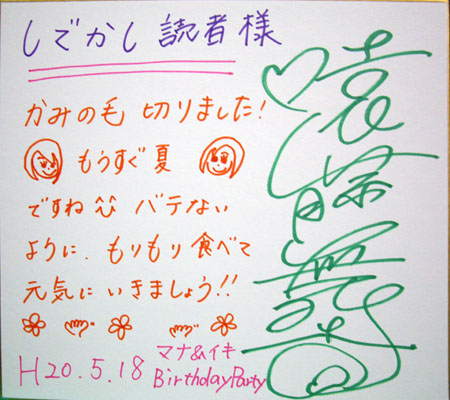 しでかし読者様
かみの毛 切りました!
もうすぐ夏
ですね バテない
ように、もりもり食べて
元気にいきましょう!!
H20.5.18
マナ&イキ
BirthdayParty